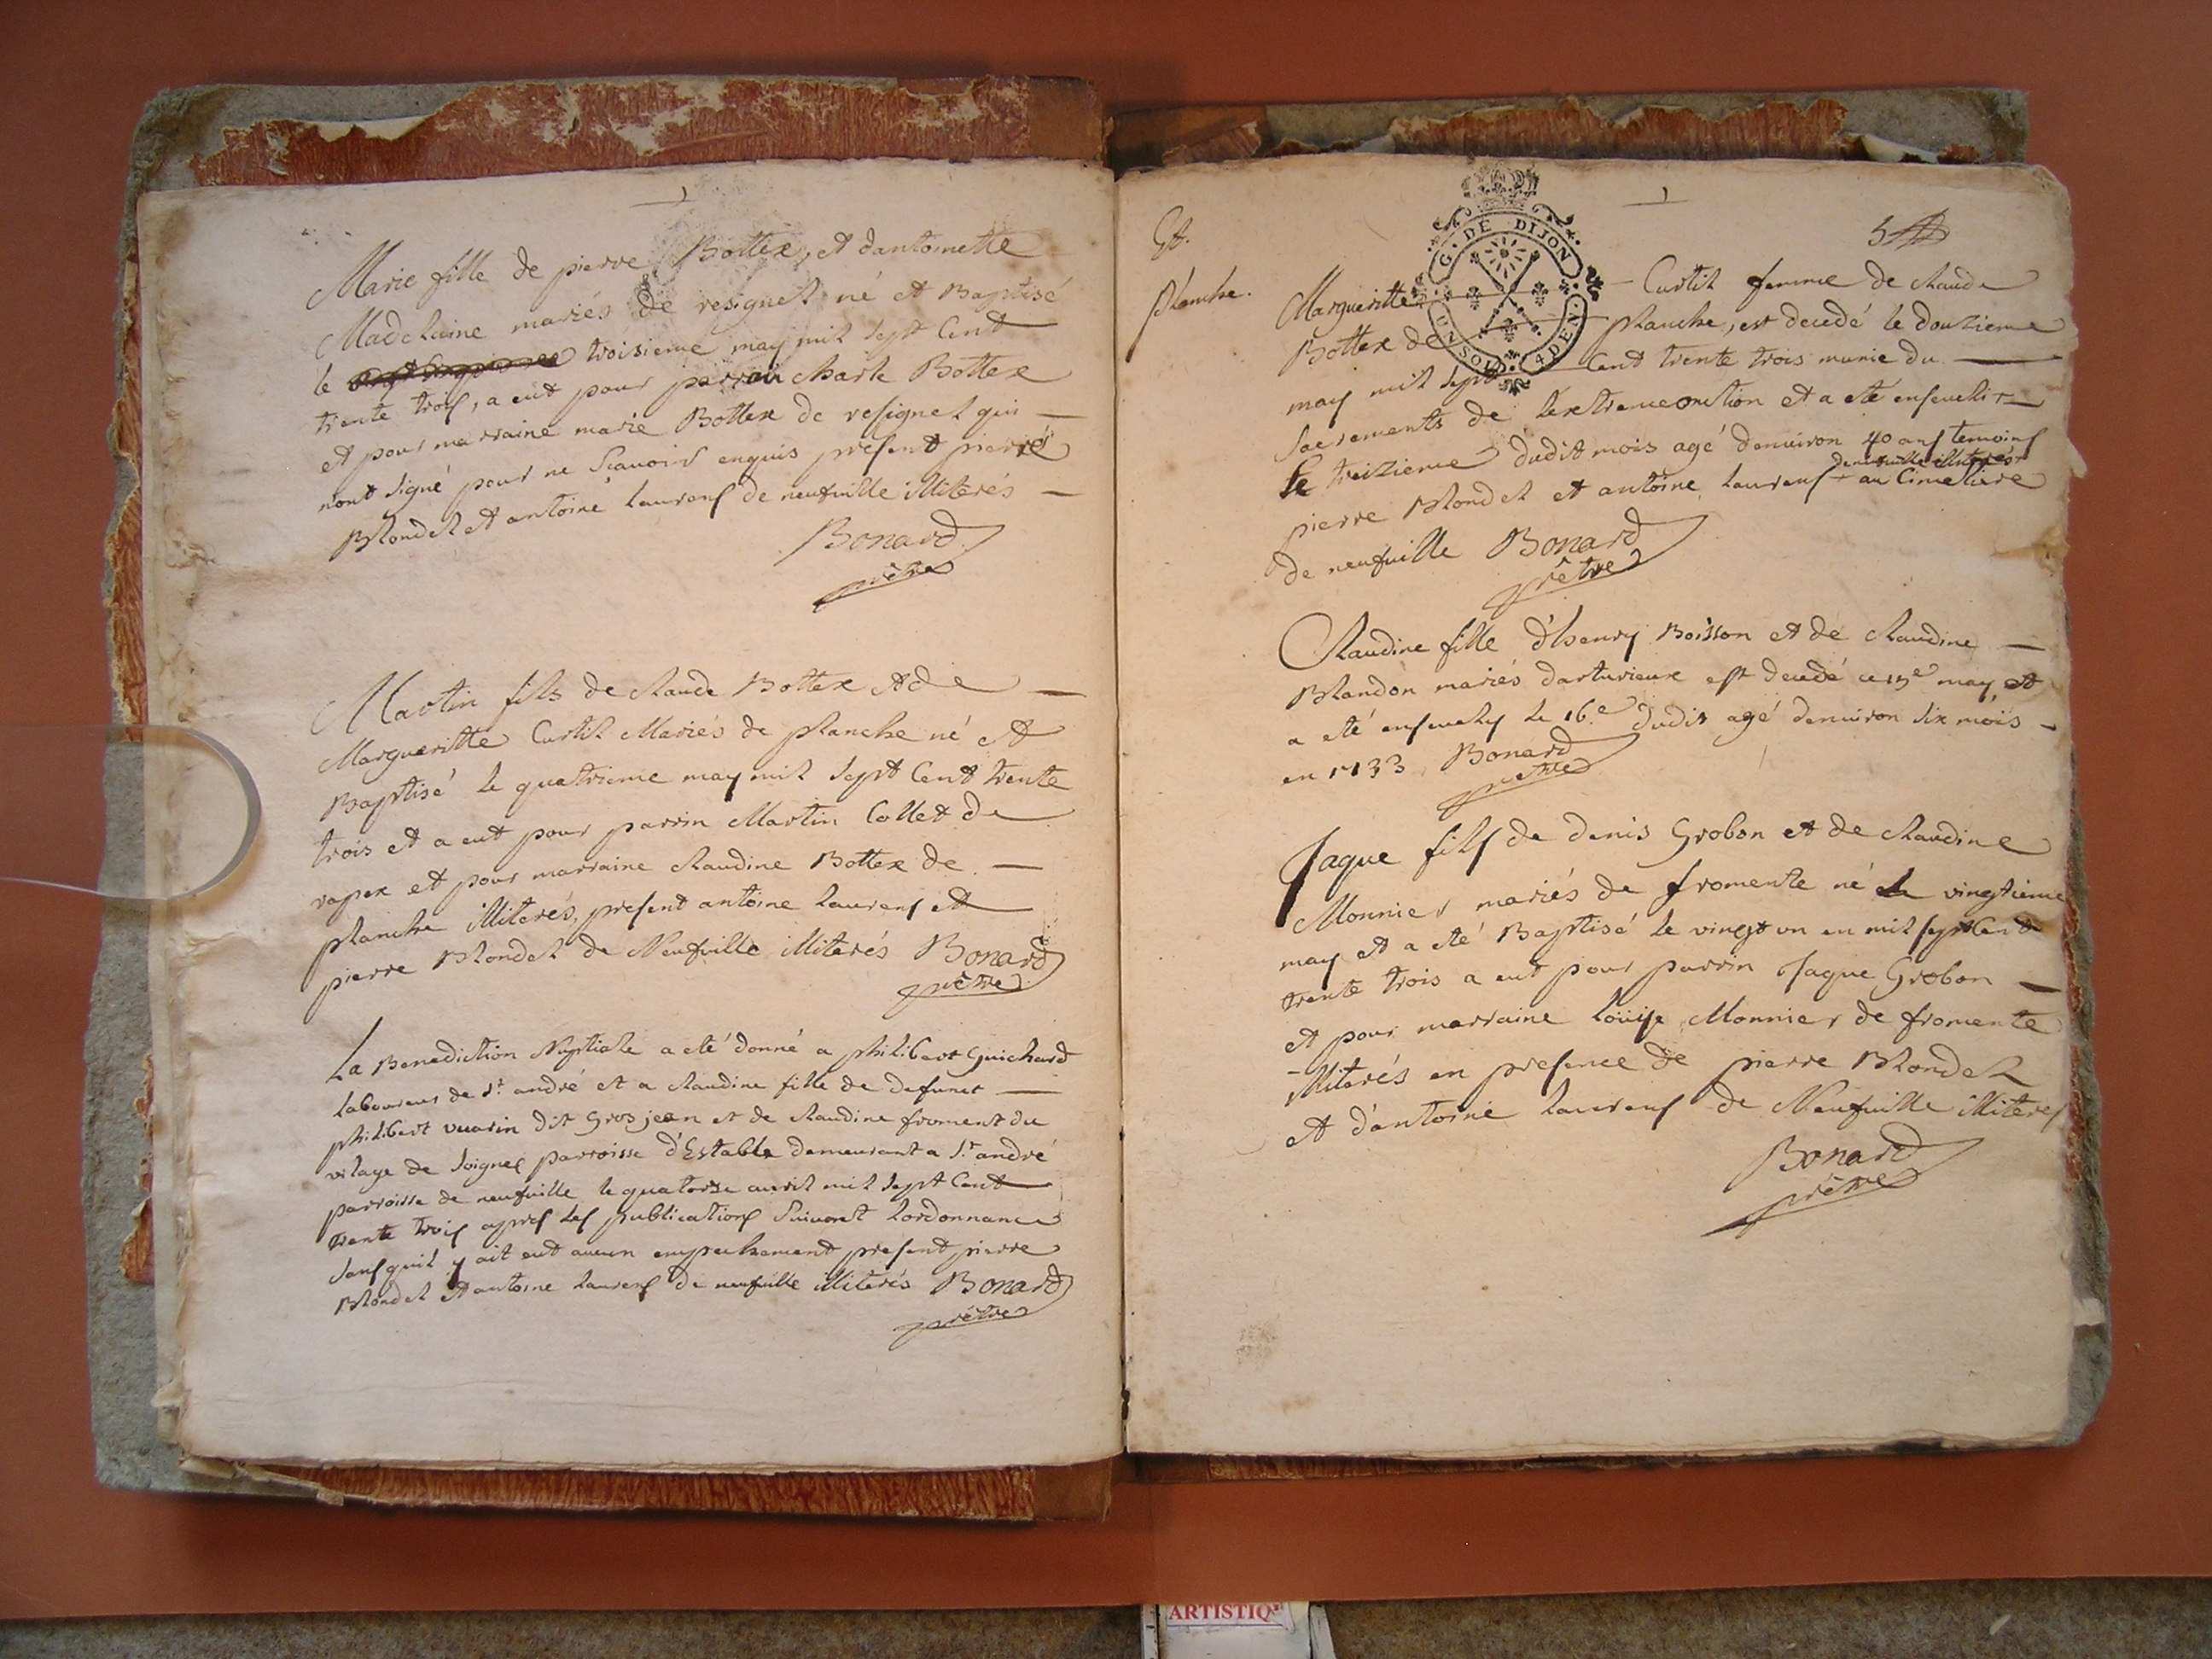 Marie fille de pierre Bottex, et dantoinette
Madelaine mariés de resignel né et Baptisé
le troisieme may mil sept Cent
trente trois, a eut pour parrain charle Bottex
et pour marraine marie Bottex de resignel qui
nont signé pour ne Scavoir enquis present pierre
Blondel et antoine laurens de neufville illiterés
Bonard
prêtre
Martin fils de claude Bottex et de
Margueritte Curtil Mariés de planche né et
Baptisé le quatrieme may mil sept Cent trente
trois et a eut pour parrin Martin Collet de
rapex et pour marraine claudine Bottex de
planche illiterés, present antoine laurens et
pierre Blondel de Neufville illiterés Bonard
prêtre
La Benediction Nuptiale a eté donné a philibert Guichard
laboureur de st andré et a claudine fille de defunct
philibert vuarin dit Grosjean et de claudine froment du
vilage de soignes parroisse d'Estables demeurant a st andré
parroisse de neufville le quatorze avril mil sept Cent
trente trois apres les publications suivant lordonnance
sans quil y ait eut aucun empechement present pierre
Blondel et antoine laurens de neufville illiterés Bonard
prêtre
G. DE DIJON
UN SOL 4 DEN.
planche.
Margueritte Curtil femme de claude
Bottex de planche, est decedé le douzieme
may mil sept Cent trente trois munie du
sacrements de lextremeonction et a eté enseveli
Le treizieme dudit mois agé denviron 40 ans temoins
de neufville illiterés
pierre Blondel et antoine laurens au Cimetiere
de neufville Bonard
prêtre
Claudine fille d'henry Boisson et de claudine
Blandon mariés darturieux est decedé ce 15e may, et
a eté ensevely le 16.e dudit agé denviron six mois
en 1733 Bonard
prêtre
Jaque fils de denis Grobon et de claudine
Monnier mariés de fromente né le vingtieme
may et a eté Baptisé le vingt un en mil sept Cent
trente trois a eut pour parrin Jaque Grobon
et pour marraine loüise Monnier de fromente
illiterés en presence de pierre Blondel
et d'antoine laurens de Neufville illiteres
Bonard
prêtre
ARTISTIQ